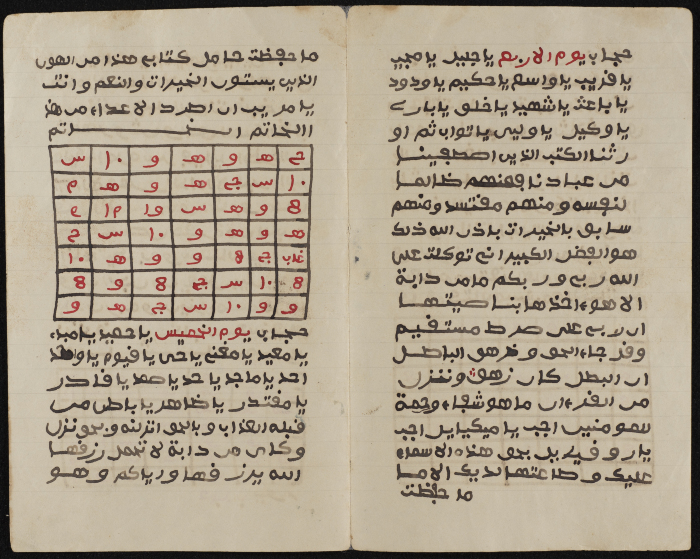 حجاب يوم الاربع يا جليل يا مجيب
يا قريب يا واسع يا حكيم يا ودود
يا باعث يا شهيد يا خلق يا بارے
يا وكيل يا وليى يا تواب ثم او
رثنا الكتب الذين اصطفينا
من عبادنا فمنهم ظالما
لنفسه و منهم مقتسد ومنهم
سابق بالخيرات باذن الله ذلك
هو الفضل الكبير اني توكلت على
الله ربي و ربكم ما من دابة
الا هو اخذها بناصيتها
ان ربي على صرط مستقيم
وقل جاء الحق و زهق الباطل
ان البطل كان زهق وننزل
من القرءان ما هو شفاء ورحمة
للمومنين اجب يا ميكيايل اجب
يا روفيايل بحق هذه الاسماء
عليك و طاعتها لديك الا ما
ما حفظت
ما حفظت حامل كتابي هذا من
الذين يستون الخيرات والنعم وانت
يا ان اطرد الاعداء من هذ
االخاتم الخاتم
ج هـ و هـ و ١٠ س
١٠ س ج هـ و هـ م
8 و هـ س و
هـ و هـ و ١٠ س ج
ج 8 و و هـ ١٠
8 ١٠ س ج 8 و 8
و و ١٠ س ج هـ و
حجاب يوم الخميس يا حميد يا مبدء
يا معيد يا مغني يا حي يا قيوم يا واحد
احد يا ماجد يا حد يا صمد يا قادر
يا مقتدر يا ظاهر يا باطن من
قبله العذاب و بالحق انزلنه و بحق نزل
و كاي من دابة لا تحمل رزقها
الله يرزقها و اياكم و هو